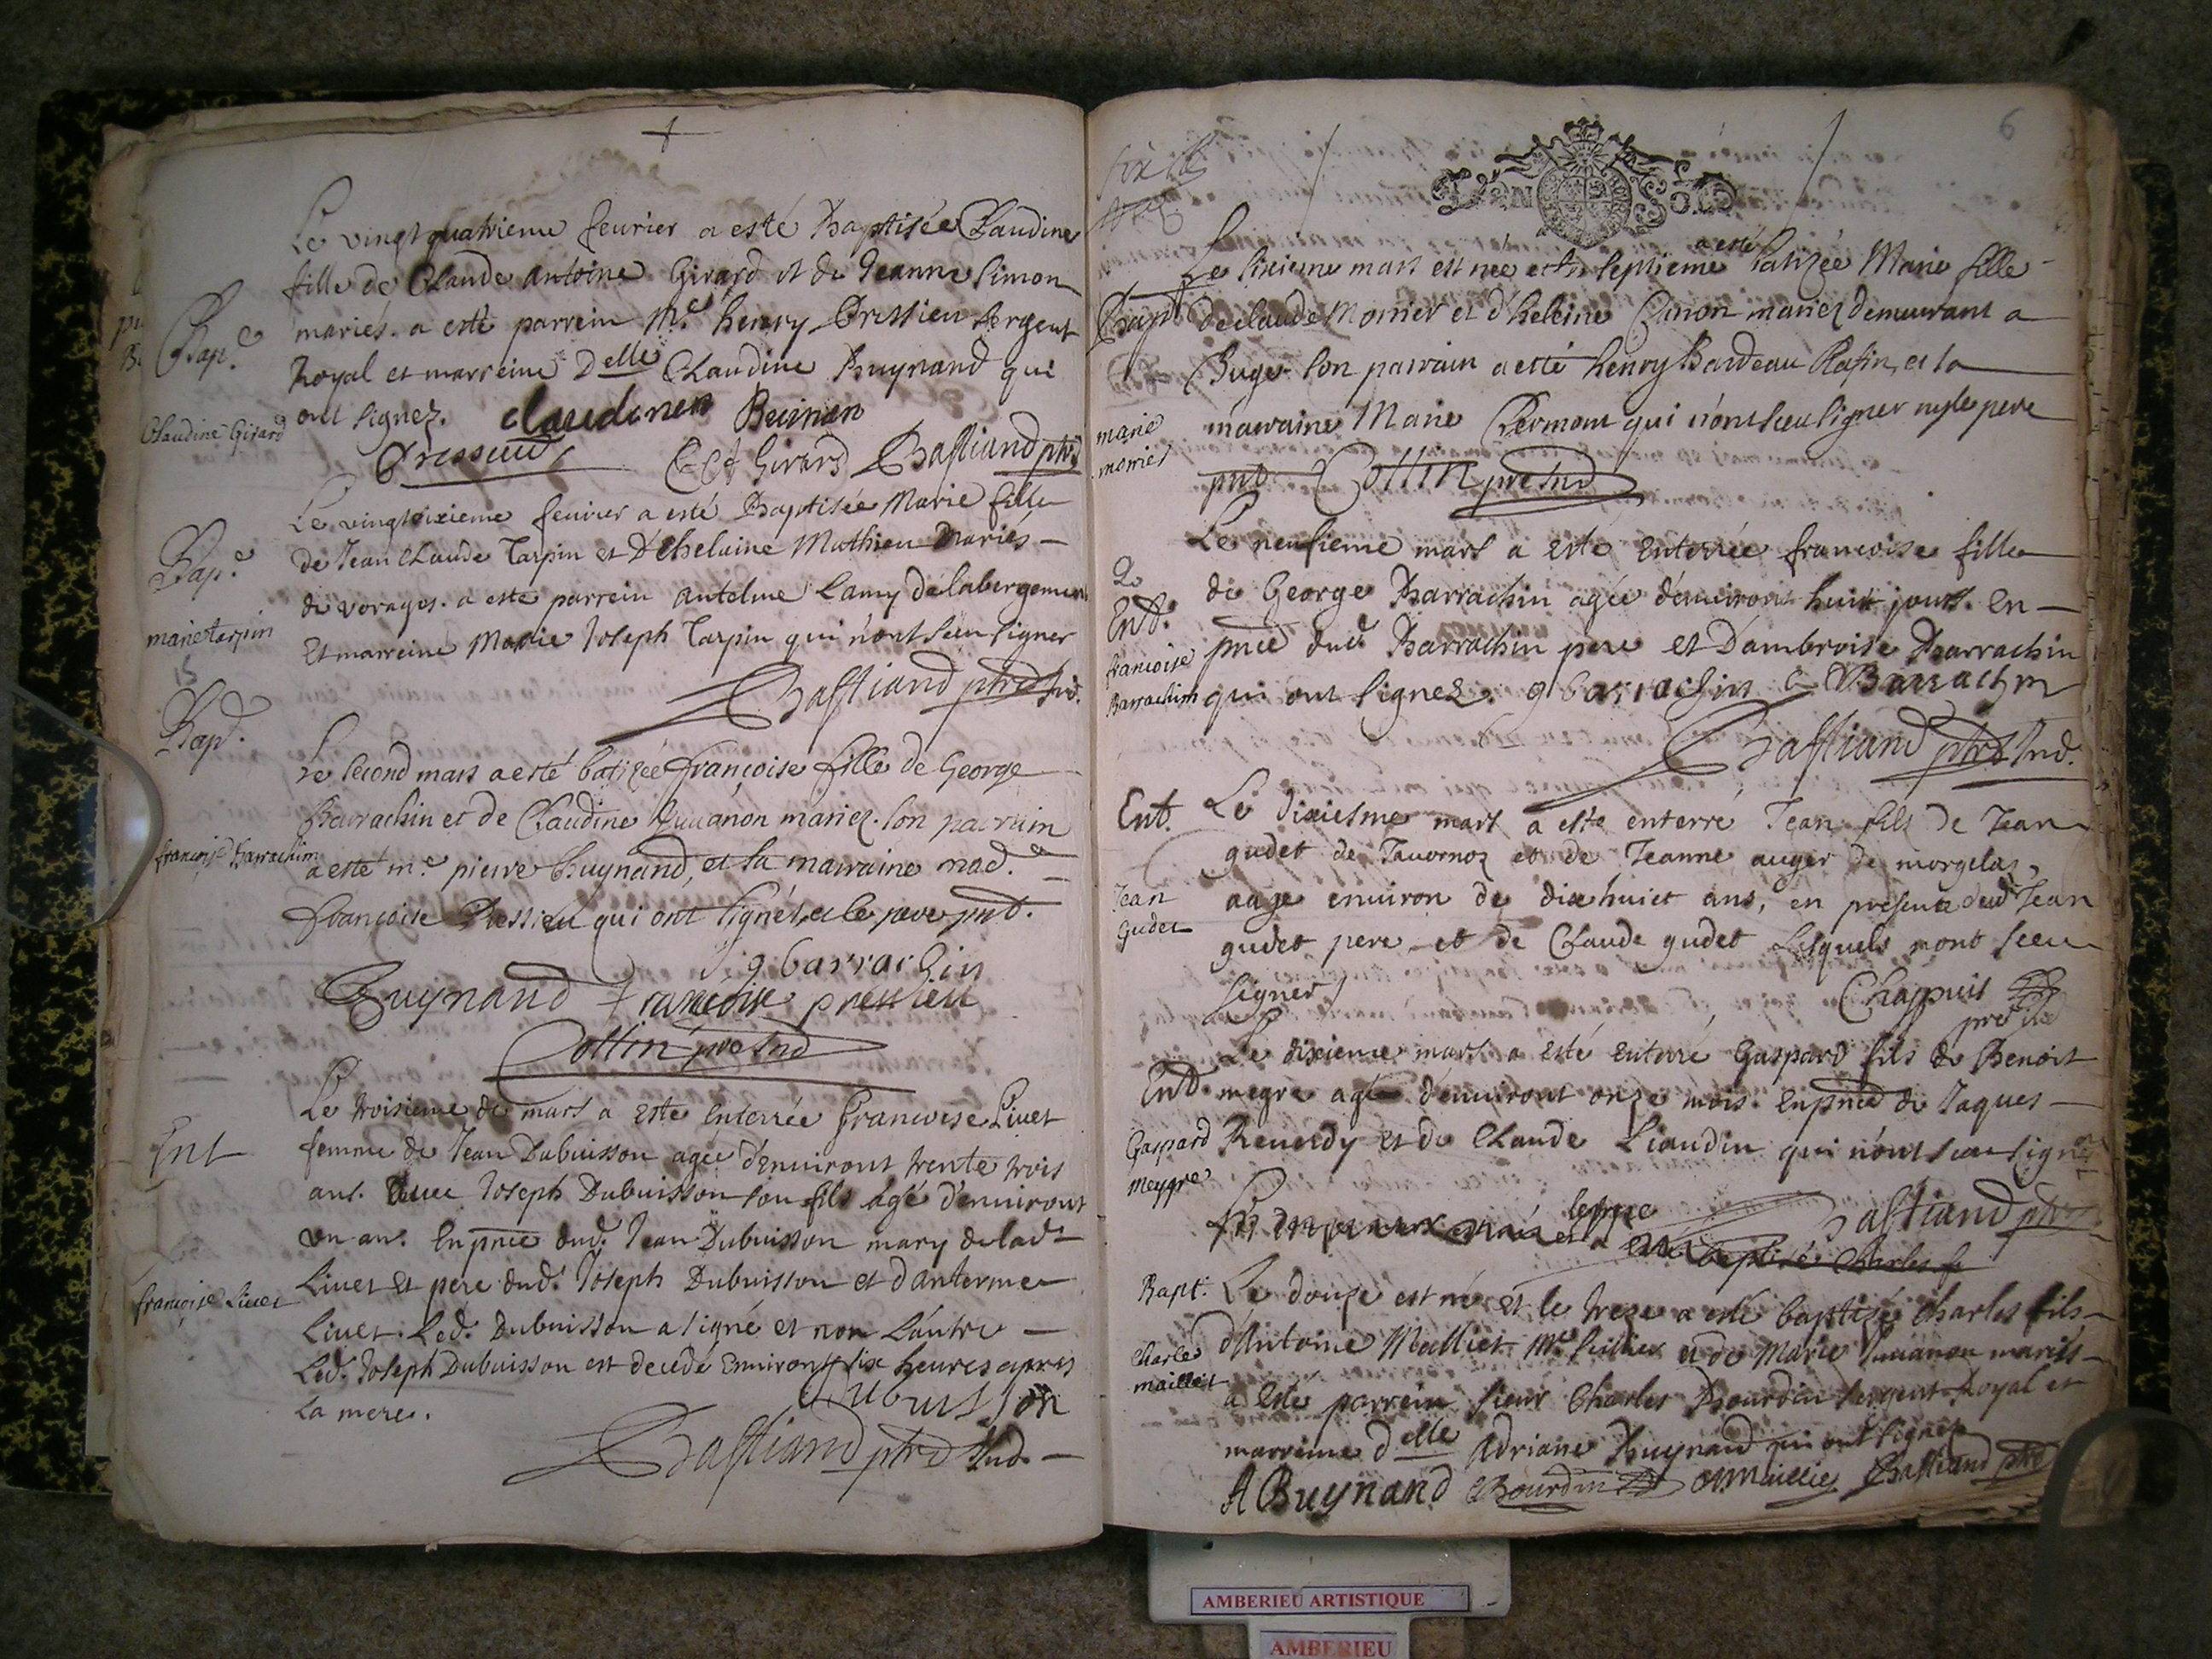 Le vingt quatrieme feurier a esté Baptisée Claudine
fille de Claude Antoine Girard et de Jeanne Simon
Bap.e mariés. a esté parrein Mre. henry Pressieu Sergent
Royal et marreine Delle Claudine Buynand qui
Claudine Girard ont signez.
C A Girard Bastiand ptre
Le vingt sixieme feurier a esté Baptisée Marie fille
Bap.e de Jean Claude Tarpin et D'helaine Mathieu Mariés
de vorages. a esté parrein Antelme Lamy de
marie tarpin Et marreine Marie Joseph Tarpin qui n'ont sceu signer
Bastiand ptre Ind.
Bapt.
Le second mars a esté batizée françoise fille de George
Barrachin et de Claudine Juuanon mariez. son parrain
françoise Barrachim a esté mre. pierre Buynand, et la marraine mad.e
françoise Pressieu qui ont signéz, et le pere pnt.
g barrachin
Buynand francoise pressieu
Cottin pre Ind
Le troisieme de mars a este enterrée Francoise Liuet
Ent femme de Jean Dubuisson agee d'enuiront trente trois
ans. Auec Joseph Dubuisson son fils agé d'enuiront
un an. En pnce dud. Jean Dubuisson mary de lad.
françoise Liuet Liuet et pere dud. Joseph Dubuisson et d'anterme
Liuet. Led. Dubuisson a signé et non L'autre
Led. Joseph Dubuisson est decedé enuiront six heures apres
la mere.
Dubuisson
Bastiand ptre Ind.
6
Le sixieme mars est née et le septieme a esté batizée Marie fille
Bapt de claude Monier et d'heleine Canon mariez demeurant a
Buge son parrain a esté henry Bardeau Rafin, et la
marie marraine Marie Clermont qui n'ont sceu signer ny le pere
monier pnt Cottin pre Ind
Le neufieme mars a esté Enterrée francoise fille
Ent. de George Barrachin agée d'enuiron huit jours. En
francoise pnce dud. Barrachin pere et D'ambroise Barrachin
Barrachim qui ont signez. g barrachin Barrachin
Bastiand ptre Ind.
Ent. Le dixiesme mars a este enterre Jean fils de Jean
gudet de Tauornoz et de Jeanne auger de morgelas,
Jean aage enuiron de dixhuict ans, en presence dud Jean
Gudet gudet pere et de Claude gudet Lesquels nont sceu
signer Chappuis
pre ind
Le dixieme mars a esté enterré Gaspard fils de Benoit
Ent. megre agé d'enuiront onze mois. En pnce de Jaques
Gaspard Reuerdy et de Claude Liaudin qui n'ont sceu signé
Meygre
Bastiand ptre
baptisé Charles
Bapt. Le douse est né et le trese a esté baptisé Charles fils
Charle d'Antoine Malliet et de Marie Juuanon mariés
mailliet a este parrein sieur Charles Bourdin sergent Royal et
marreine delle Adriane Buynand qui ont signez
A Buynand Bourdin Bastiand ptre
AMBERIEU ARTISTIQUE
AMBERIEU